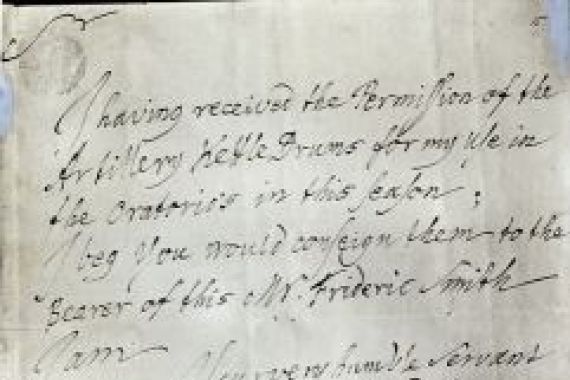 Sr
5
I having received the Permission of the
Artillery Kettle Drums for my use in
the Oratorio's in this season;
I beg You would conseign them to the
Bearer of this Mr. Frideric Smith
I am
Your very humble Servant